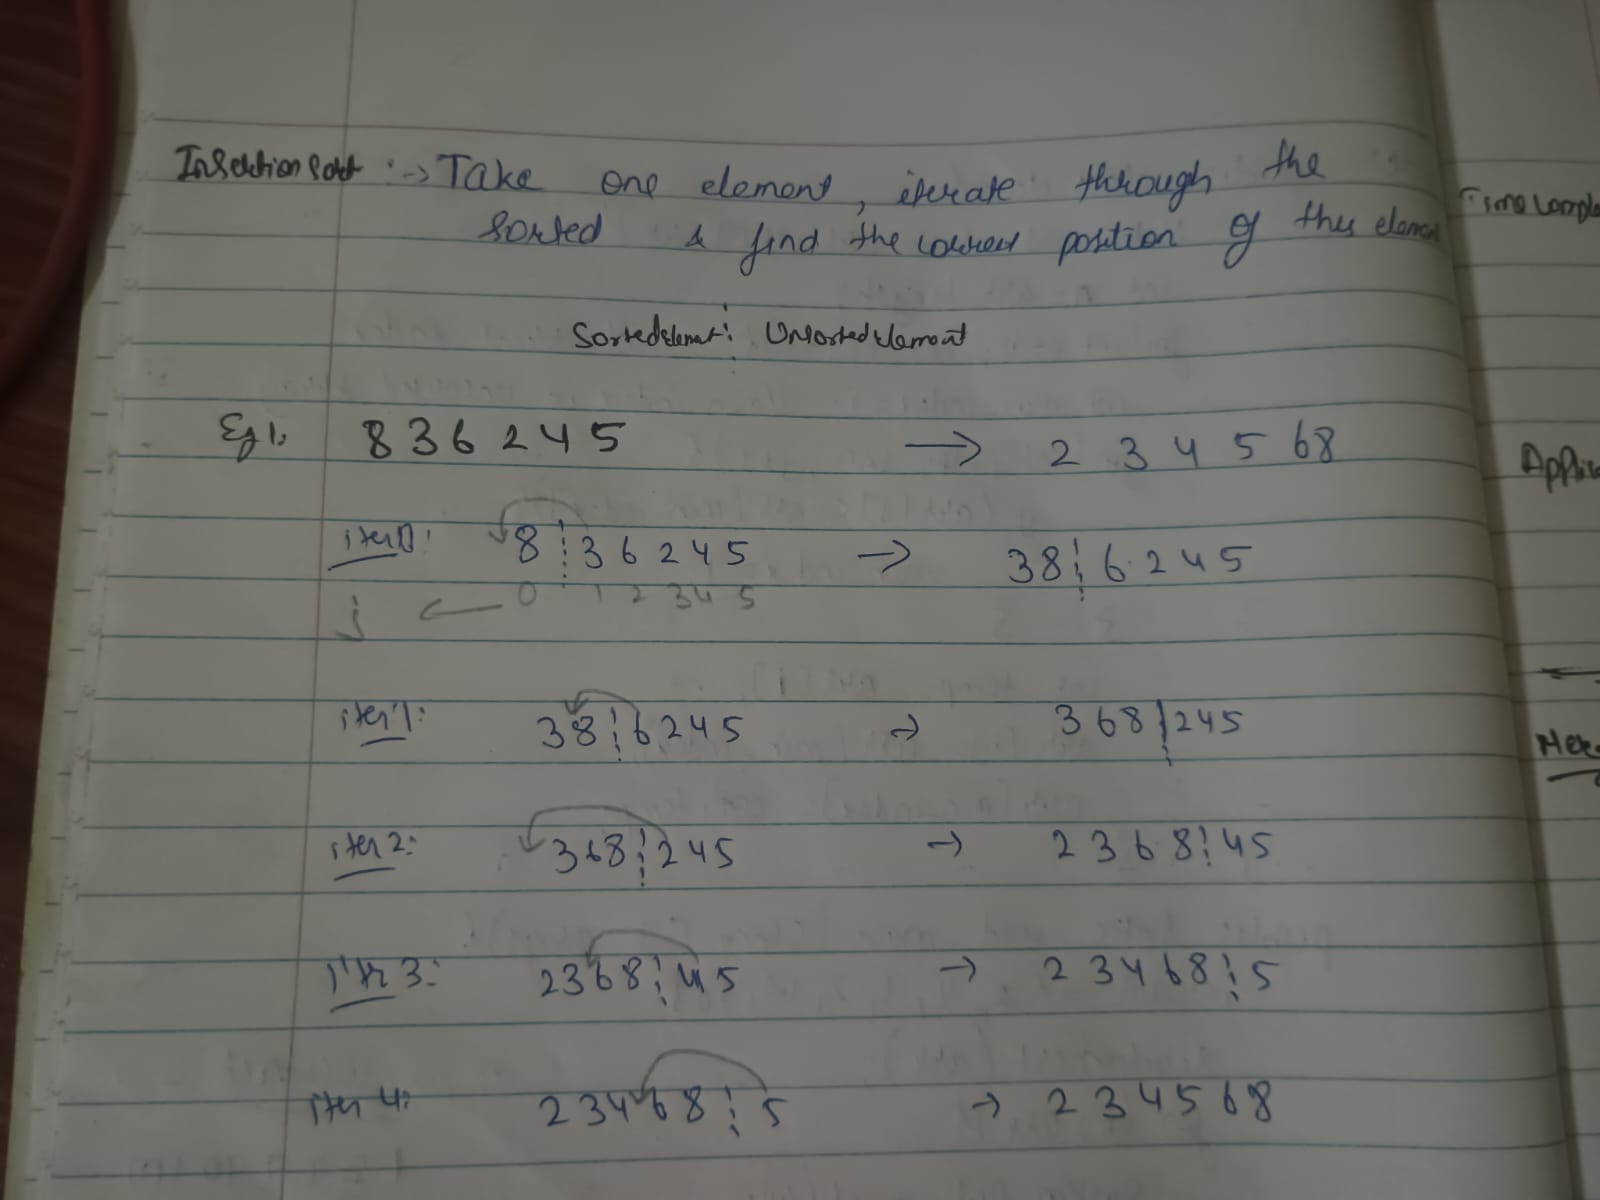 Insertion sort :-> Take one element, iterate through the
sorted & find the correct position of this element
Sorted element ¦ Unsorted element
Eg 1. 8 3 6 2 4 5 → 2 3 4 5 6 8
iter 0: 8 ¦ 3 6 2 4 5 → 3 8 ¦ 6 2 4 5
j ← 0 1 2 3 4 5
iter 1: 3 8 ¦ 6 2 4 5 → 3 6 8 ¦ 2 4 5
iter 2: 3 6 8 ¦ 2 4 5 → 2 3 6 8 ¦ 4 5
iter 3: 2 3 6 8 ¦ 4 5 → 2 3 4 6 8 ¦ 5
iter 4: 2 3 4 6 8 ¦ 5 → 2 3 4 5 6 8
Time Comple
Applic
Mer